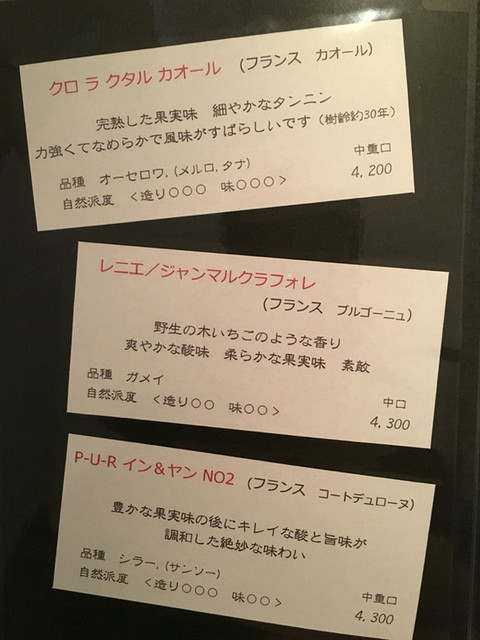 クロ ラ クタル カオール （フランス　カオール）
完熟した果実味　細やかなタンニン
力強くてなめらかで風味がすばらしいです（樹齢約30年）
品種　オーセロワ,（メルロ, タナ）
中重口
自然派度　＜造り○○○　味○○○＞
4,200
レニエ／ジャンマルクラフォレ
（フランス　ブルゴーニュ）
野生の木いちごのような香り
爽やかな酸味　柔らかな果実味　素敵
品種　ガメイ
中口
自然派度　＜造り○○　味○○＞
4,300
P-U-R イン＆ヤン NO2 （フランス　コートデュローヌ）
豊かな果実味の後にキレイな酸と旨味が
調和した絶妙な味わい
品種　シラー,（サンソー）
中重口
自然派度　＜造り○○○　味○○＞
4,300